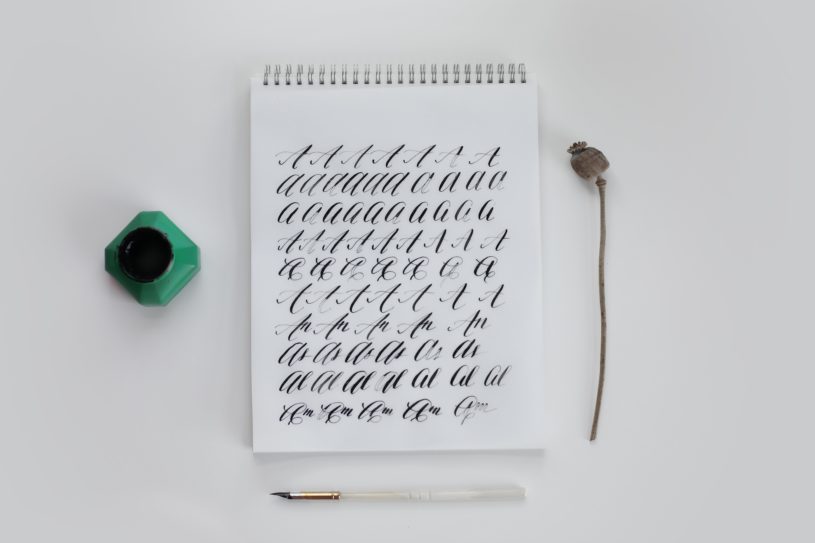 A A A A A A A
a a a a a a a a a a a
a a a a a a a a a a
A A A A A A A A A
A A A A A A A
A A A A A A A
An An An An An
As As As As As As
Al Al Al Al Al Al Al
Am Am Am Am Am